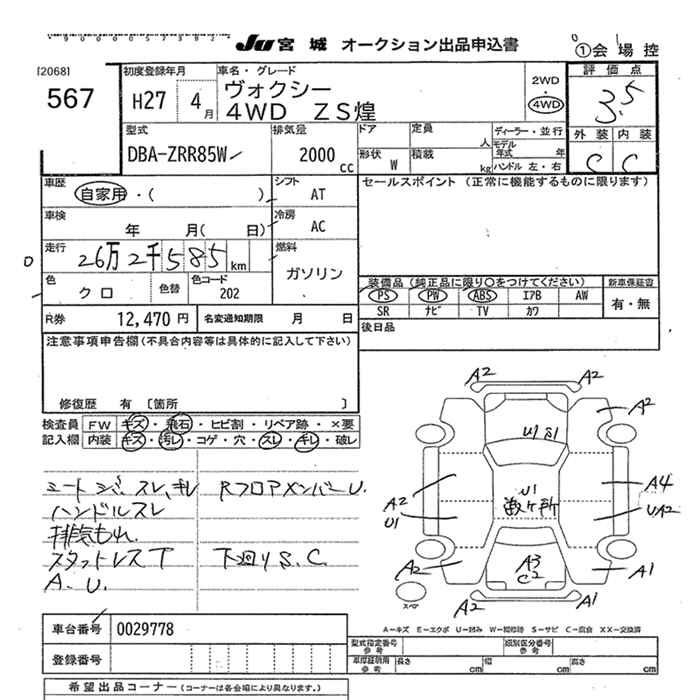 JU 宮城 オークション出品申込書
①会場控
[2068]
567
初度登録年月
H27 4月
車名・グレード
ヴォクシー
4WD ZS煌
2WD
・
4WD
評価点
3.5
外装 内装
C C
型式
DBA-ZRR85W
排気量
2000cc
ドア
定員 人
ディーラー・並行
モデル年式 年
形状 W
積載 kg
ハンドル 左・右
車歴
自家用・( )
シフト
AT
セールスポイント (正常に機能するものに限ります)
車検
年 月( 日)
冷房
AC
走行
26万2千585km
燃料
ガソリン
色
クロ
色替
色コード
202
装備品 (純正品に限り○をつけてください)
新車保証書
PS PW ABS エアB AW
SR ナビ TV カワ
有・無
R券 12,470円
名変通知期限 月 日
後日品
注意事項申告欄(不具合内容等は具体的に記入して下さい)
修復歴 有 〔箇所 〕
検査員記入欄
FW キズ・飛石・ヒビ割・リペア跡・×要
内装 キズ・汚レ・コゲ・穴・スレ・キレ・破レ
シートシワ、スレ、キレ
Rフロアメンバー U.
ハンドルスレ
排気もれ.
スタットレスT
下廻りS.C.
A.U.
A2 A2
A2 A2
U1 S1
A2 U1
U1 数ヶ所
A4 UA2
A3 C2
A2 A1
A2 A1
スペア
A-キズ E-エクボ U-凹み W-補修跡 S-サビ C-腐食 XX-交換済
車台番号 0029778
登録番号
型式指定番号
類別区分番号
車庫証明用参考
長さ cm 幅 cm 高さ cm
希望出品コーナー (コーナーは各会場により異なります。)